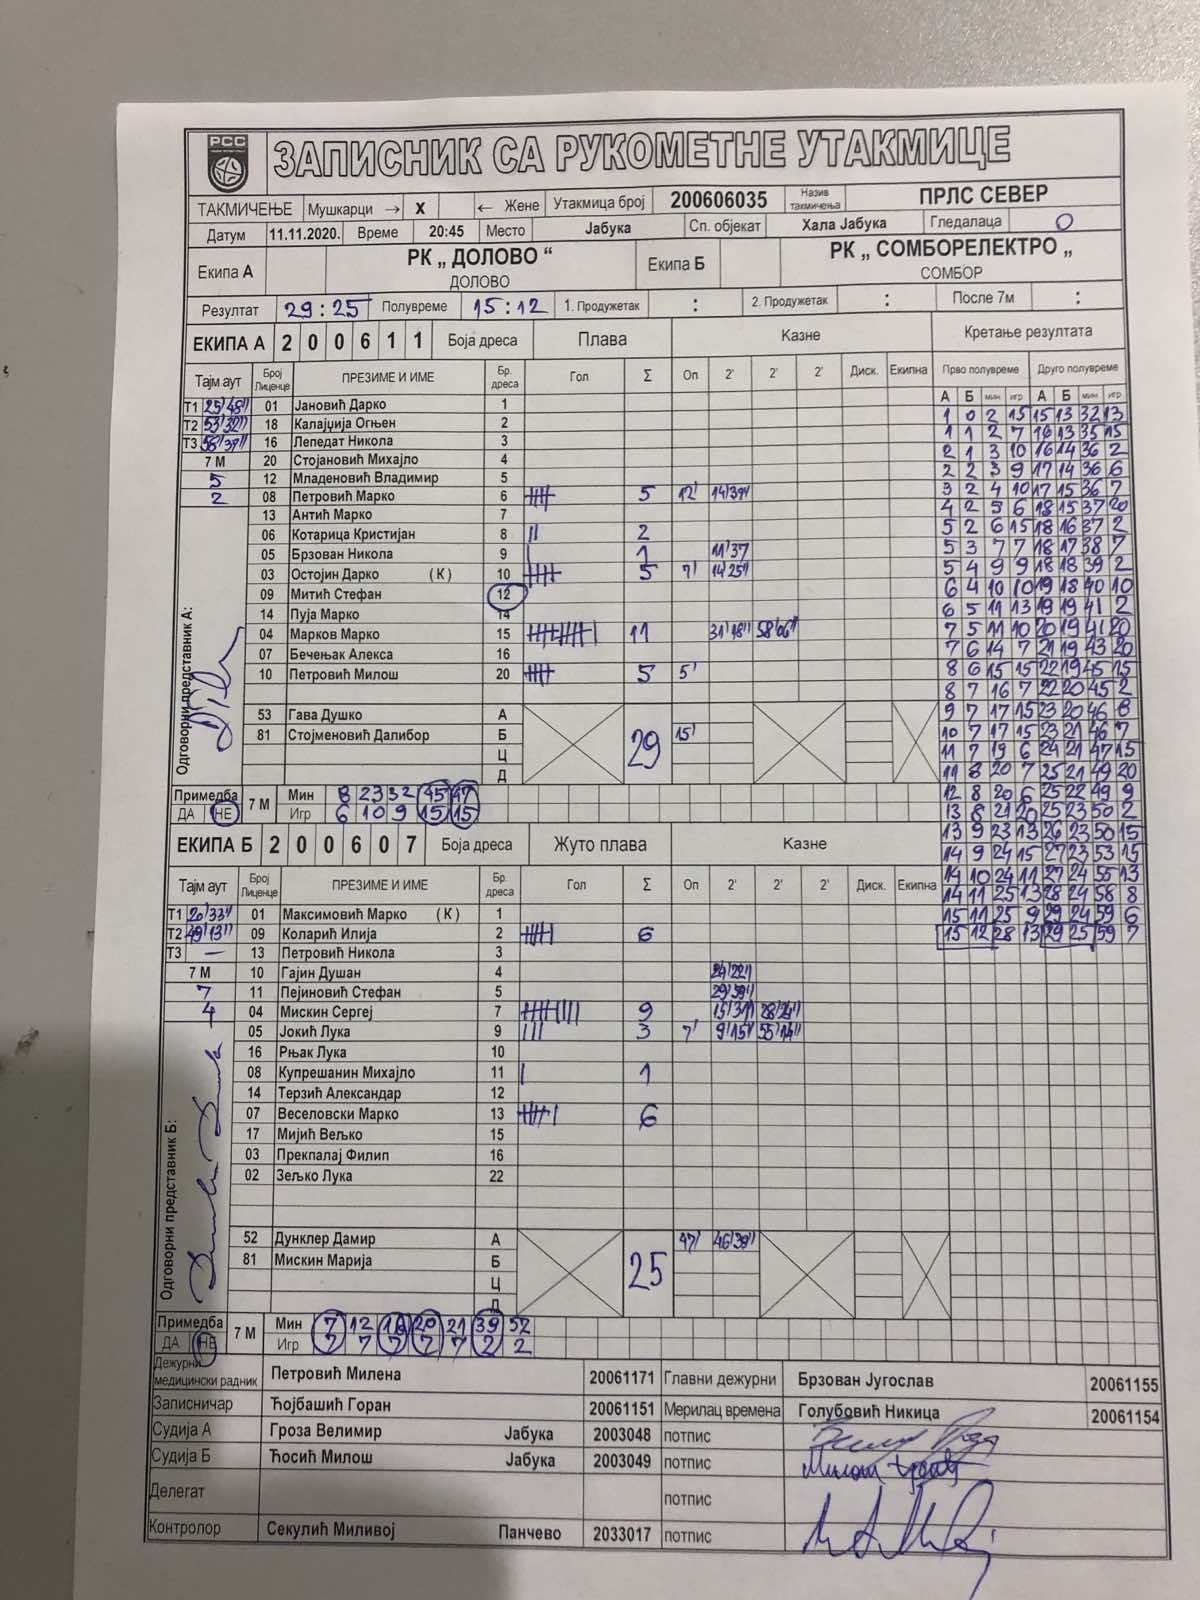 РСС
ЗАПИСНИК СА РУКОМЕТНЕ УТАКМИЦЕ
ТАКМИЧЕЊЕ Мушкарци → X ← Жене Утакмица број 200606035 Назив такмичења ПРЛС СЕВЕР
Датум 11.11.2020. Време 20:45 Место Јабука Сп. објекат Хала Јабука Гледалаца 0
Екипа А РК „ ДОЛОВО “ ДОЛОВО Екипа Б РК „ СОМБОРЕЛЕКТРО „ СОМБОР
Резултат 29:25 Полувреме 15:12 1. Продужетак : 2. Продужетак : После 7м :
ЕКИПА А 2 0 0 6 1 1 Боја дреса Плава Казне Кретање резултата
Тајм аут Број Лиценце ПРЕЗИМЕ И ИМЕ Бр. дреса Гол Σ Оп 2' 2' 2' Диск. Екипна Прво полувреме Друго полувреме
А Б мин игр А Б мин игр
Т1 25'48" 01 Јановић Дарко 1
1 0 2 15 15 13 32 13
Т2 53'32" 18 Калајџија Огњен 2
1 1 2 7 16 13 35 15
Т3 58'37" 16 Лепедат Никола 3
2 1 3 10 16 14 36 2
7 М 20 Стојановић Михајло 4
2 2 3 9 17 14 36 6
5 12 Младеновић Владимир 5
3 2 4 10 17 15 36 7
2 08 Петровић Марко 6 5 12' 14'39"
4 2 5 6 18 15 37 20
13 Антић Марко 7
5 2 6 15 18 16 37 2
06 Котарица Кристијан 8 2
5 3 7 7 18 17 38 7
05 Брзован Никола 9 1 11'37
5 4 9 9 18 18 39 2
03 Остојин Дарко (К) 10 5 7' 14'25"
6 4 10 10 19 18 40 10
09 Митић Стефан 12
6 5 11 13 19 19 41 2
14 Пуја Марко 14
7 5 11 10 20 19 41 20
04 Марков Марко 15 11 31'18" 58'06"
7 6 14 7 21 19 43 20
07 Бечењак Алекса 16
8 6 15 15 22 19 45 15
10 Петровић Милош 20 5 5'
8 7 16 7 22 20 45 2
9 7 17 15 23 20 46 8
53 Гава Душко А
10 7 17 15 23 21 46 7
81 Стојменовић Далибор Б 29 15'
11 7 19 6 24 21 47 15
Ц
11 8 20 7 25 21 49 20
Д
Одговорни представник А:
12 8 20 6 25 22 49 9
Примедба 7 М Мин 8 23 32 45 47
13 8 21 20 25 23 50 2
ДА НЕ Игр 6 10 9 15 15
13 9 23 13 26 23 50 15
ЕКИПА Б 2 0 0 6 0 7 Боја дреса Жуто плава Казне
14 9 24 15 27 23 53 15
Тајм аут Број Лиценце ПРЕЗИМЕ И ИМЕ Бр. дреса Гол Σ Оп 2' 2' 2' Диск. Екипна
14 10 24 11 27 24 55 13
14 11 25 13 28 24 58 8
Т1 20'33" 01 Максимовић Марко (К) 1
15 11 25 9 29 24 59 6
Т2 49'13" 09 Коларић Илија 2 6
15 12 28 13 29 25 59 7
Т3 — 13 Петровић Никола 3
7 М 10 Гајин Душан 4 24'22"
7 11 Пејиновић Стефан 5 29'59"
4 04 Мискин Сергеј 7 9 15'31" 28'24"
05 Јокић Лука 9 3 7' 9'15" 55'14"
16 Рњак Лука 10
08 Купрешанин Михајло 11 1
14 Терзић Александар 12
07 Веселовски Марко 13 6
17 Мијић Вељко 15
03 Прекпалај Филип 16
02 Зељко Лука 22
52 Дунклер Дамир А 47' 46'39"
81 Мискин Марија Б 25
Ц
Д
Одговорни представник Б:
Примедба 7 М Мин 7 12 20 21 39 52
ДА НЕ Игр 7 7 7 7 7 2 2
Дежурни медицински радник Петровић Милена 20061171 Главни дежурни Брзован Југослав 20061155
Записничар Ћојбашић Горан 20061151 Мерилац времена Голубовић Никица 20061154
Судија А Гроза Велимир Јабука 2003048 потпис
Судија Б Ћосић Милош Јабука 2003049 потпис Милош
Делегат потпис
Контролор Секулић Миливој Панчево 2033017 потпис